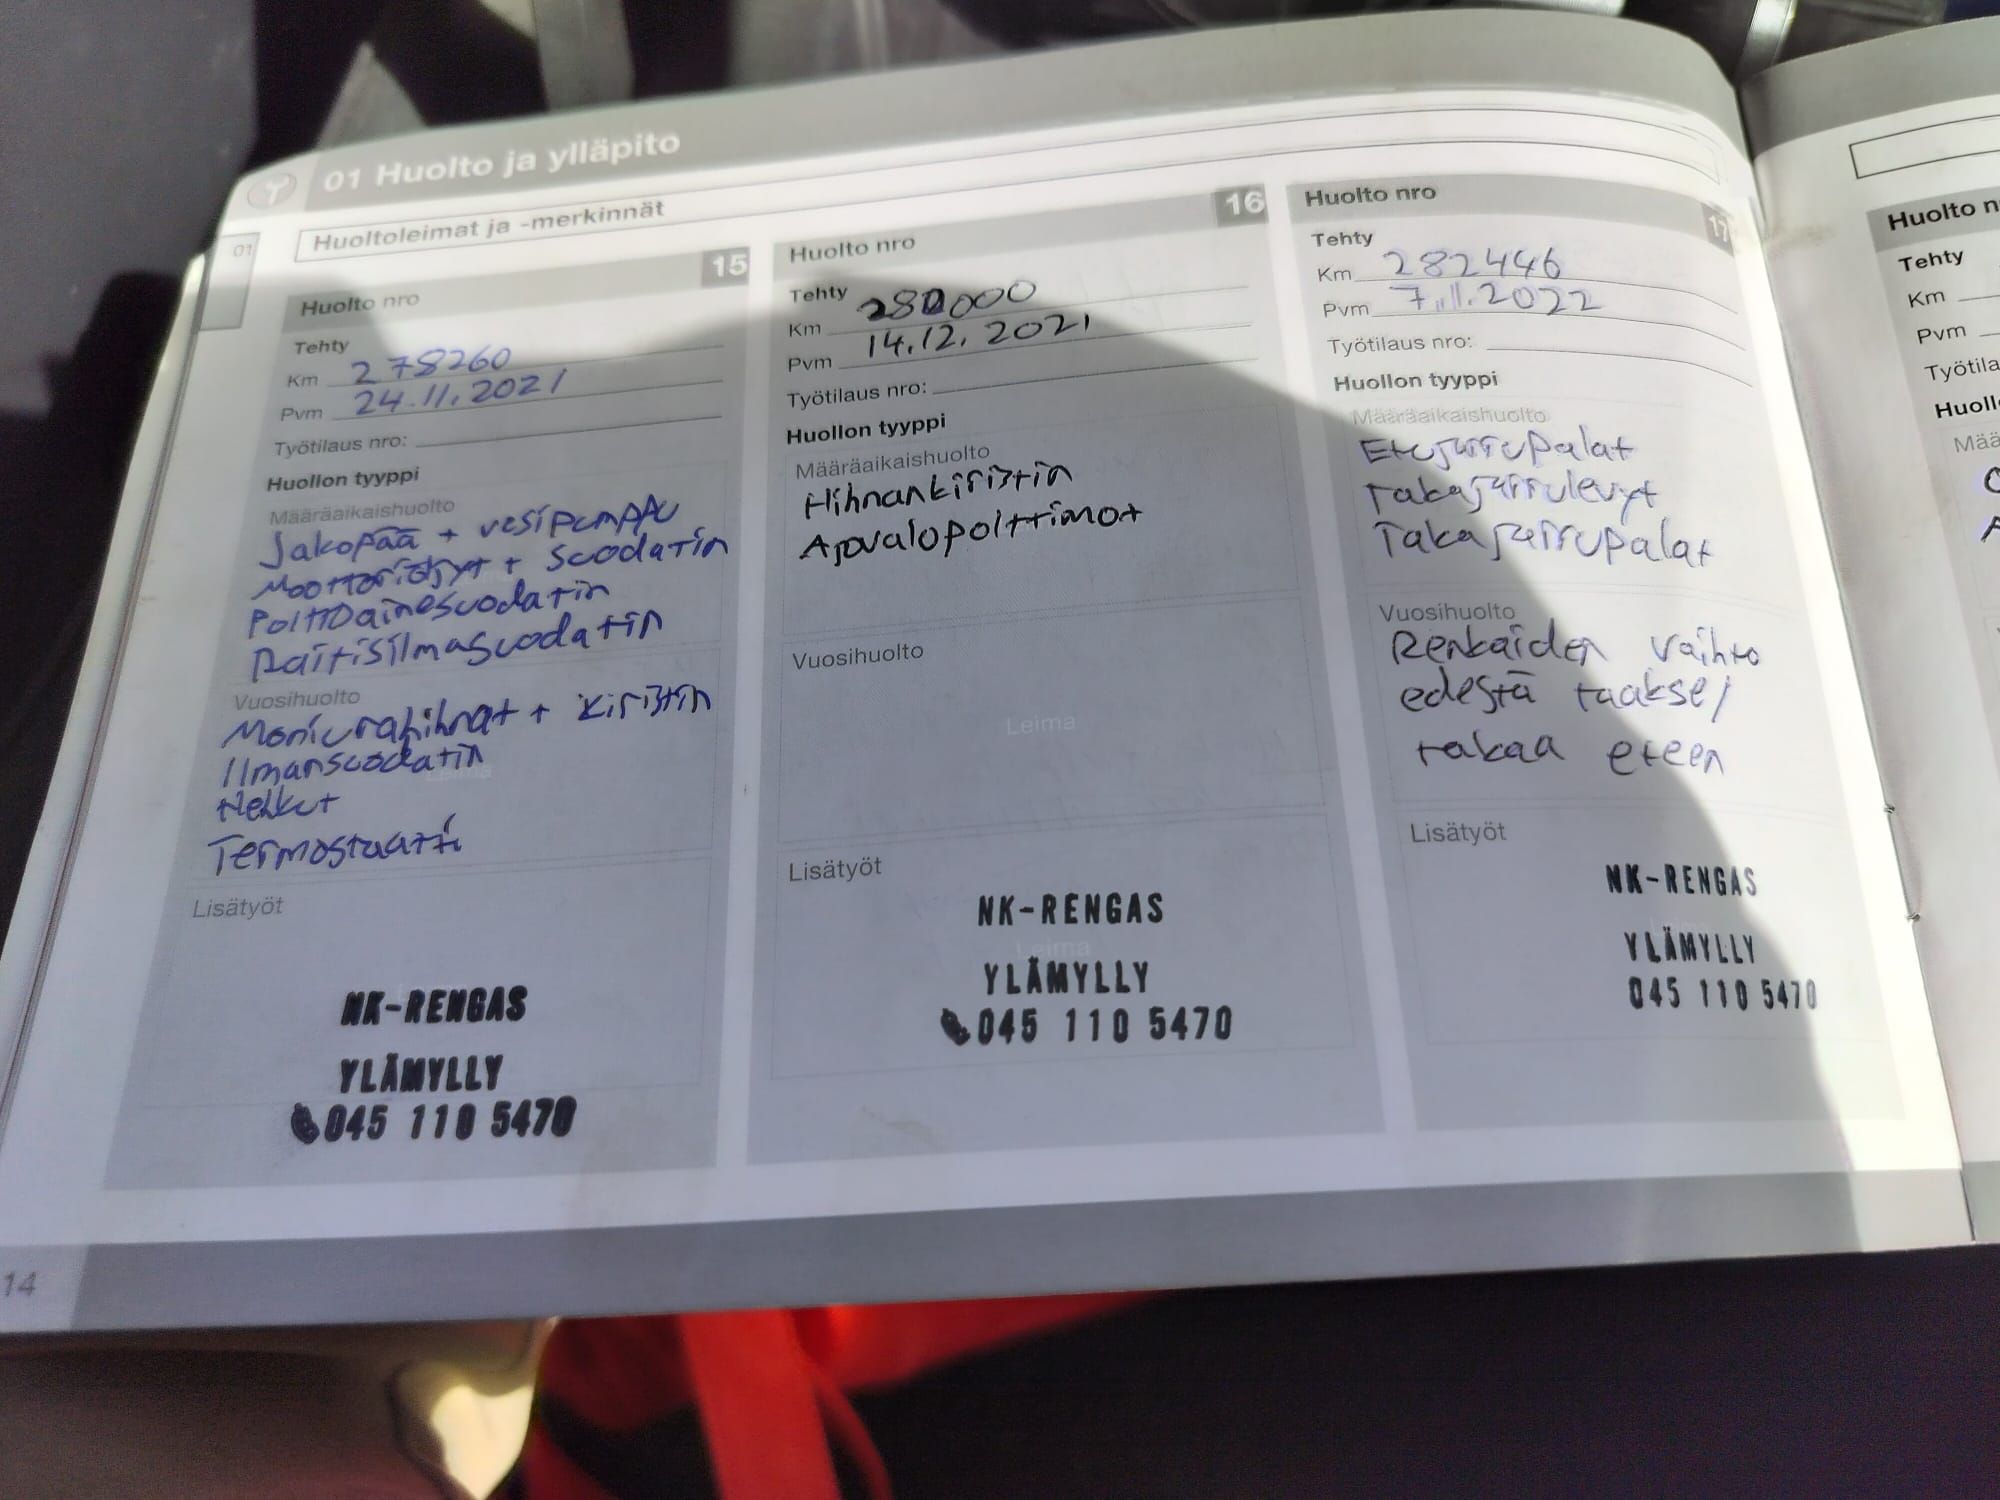 01 Huolto ja ylläpito
01
Huoltoleimat ja -merkinnät
Huolto nro 15
Tehty
Km 278260
Pvm 24.11.2021
Työtilaus nro:
Huollon tyyppi
Määräaikaishuolto
Jakopää + vesipumppu
Moottoriöljyt + suodatin
Polttoainesuodatin
Raitisilmasuodatin
Vuosihuolto
Moniurahihnat + kiristin
Ilmansuodatin
Leima
Hehkut
Termostaatti
Lisätyöt
NK-RENGAS
YLÄMYLLY
045 110 5470
Huolto nro 16
Tehty
Km 282000
Pvm 14.12.2021
Työtilaus nro:
Huollon tyyppi
Määräaikaishuolto
Hihnankiristin
Ajovalopolttimot
Vuosihuolto
Leima
Lisätyöt
NK-RENGAS
Leima
YLÄMYLLY
045 110 5470
Huolto nro 17
Tehty
Km 282446
Pvm 7.11.2022
Työtilaus nro:
Huollon tyyppi
Määräaikaishuolto
Etujarrupalat
Takajarrulevyt
Takajarrupalat
Vuosihuolto
Renkaiden vaihto
edestä taakse/
takaa eteen
Lisätyöt
NK-RENGAS
YLÄMYLLY
045 110 5470
14
Huolto n
Tehty
Km
Pvm
Työtila
Huoll
Mää